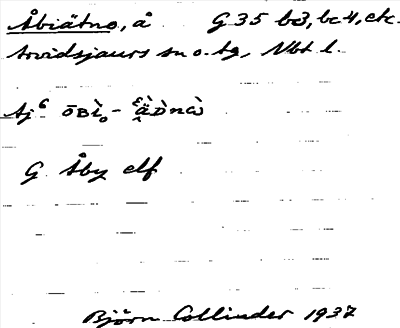 Åbiätno, å G 35 bc3, bc4, etc.
Arvidsjaurs sn o. tg, Nbt l.
Aj⁶ ōʙi̥-
G. Åby elf
Björn Collinder 1937